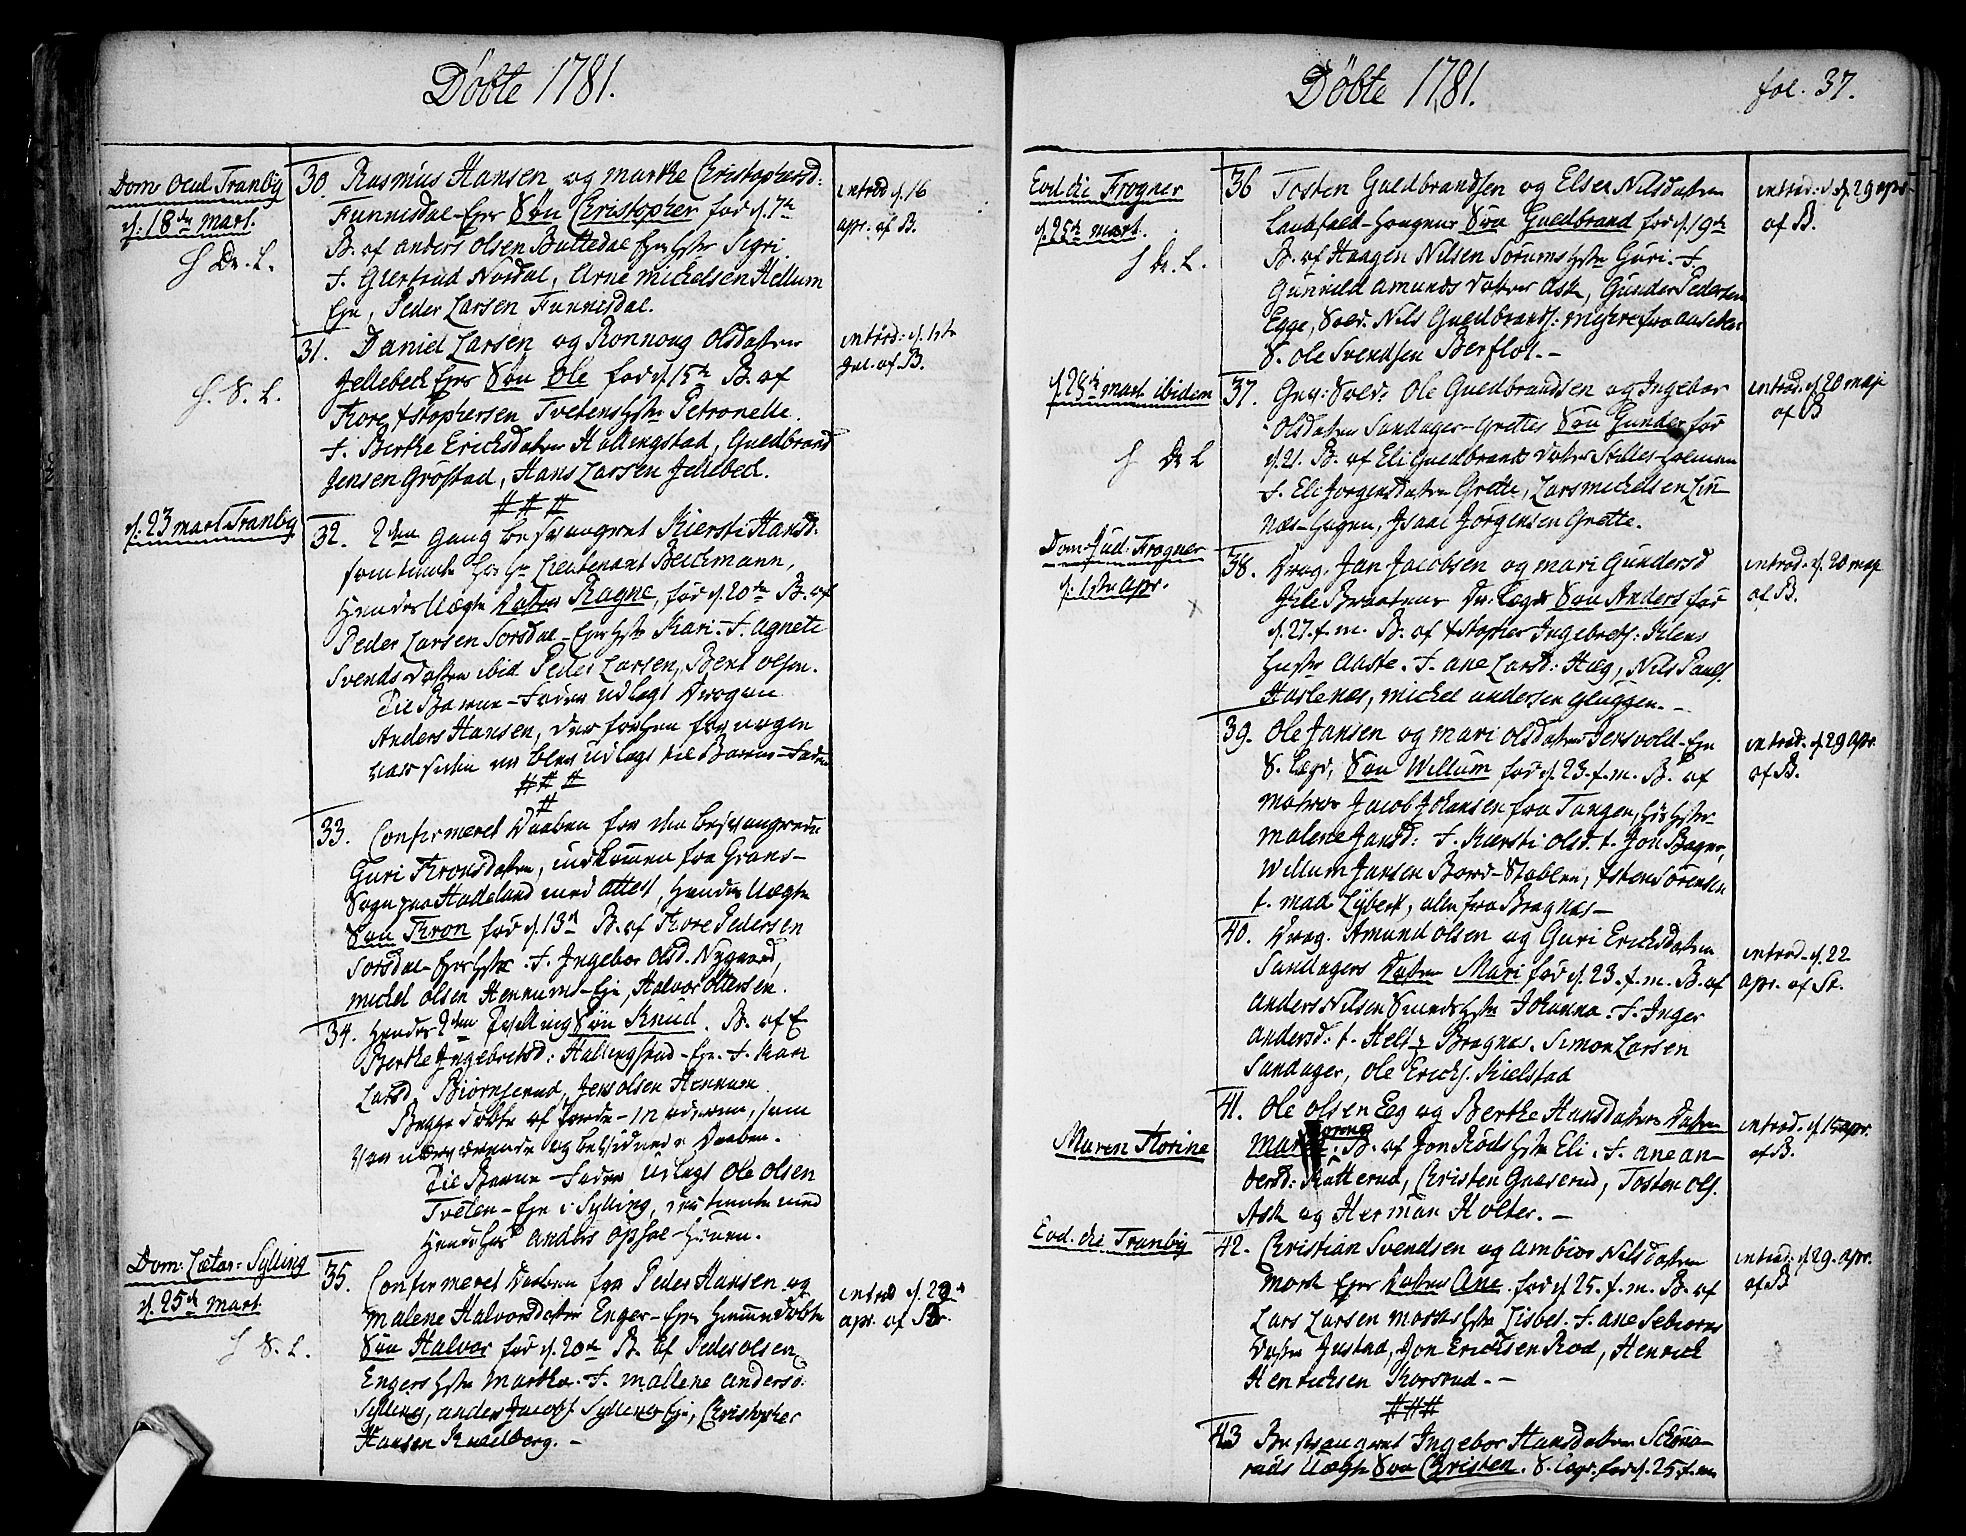 Döbte 1781.
Dom. Ocul. Tranbÿ
d: 18de Mart.
S Dr. L.
30. Rasmus Hansen og Marthe Christophersd:
Funnisdal-Eyes Sön Christopher föd d. 7de
B. af Anders Olsen Buttedal Eyes Hstr Sigri.
F. Giertrud Nordal, Arne Michelsen Hellum
Eye, Peder Larsen Funnisdal.
introd d. 16
apr. af B.
31. Daniel Larsen og Ronnoug Olsdatter
Jellebeck Eyes Sön Ole föd d. 15de B. af
Thore Xstophersen Tvetens Hstr Petronelle.
F. Berthe Ericksdatter Hallingstad, Guldbrand
Jensen Gröstad, Hans Larsen Jellebech.
S. S. L.
introd: d. 1ste
Jul. af B.
# # #
d: 23 Mart Tranbÿ
32. 2den Gang besvangret Kiersti Hansd:
som tiente hos Hr Lieutenant Beichmann,
Hendes Uægte Datter Ragne, föd d. 20de B. af
Peder Larsen Sorsdal-Eyes Hstr Kari. F. Agnete
Svends Datter ibid Peder Larsen, Bent Olsen.
Til Barne-Fader udlagt Dragon
Anders Hansen, der forhen for nogen
blev udlagt til Barne-Fader
# # #
#
33. Confirmeret Daaben for den besvangrede
Guri Thronsdatter, indkommen fra Grans-
Sogn paa Hadeland med Attest, Hendes Uægte
Sön Thron föd d. 13de B. af Thore Pedersen
Sorsdal-Eyes Hstr. F. Ingebor Olsd. Nygaard,
Michel Olsen Hennums-Eye, Halvor Ottersen.
34. Hendes 2den Tvilling Sön Knud. B. af E
Berthe Ingebretsd: Hallingstad-Eye. F. Kari
Larsd. Biörnserud, Jens Olsen Hennum.
Begge döbte af Jorde-Moderen, som
var nærværende og bevidnede Daaben.
Til Barne-Fader Udlagt Ole Olsen
Tveten-Eye i Sylling, der tiente med
Hende hos Anders Opsal-Huun.
Dom: Lætar: Sylling
d. 25de Mart
S S. L.
35. Confirmeret Daaben for Peder Hansen og
Malene Halvorsdatter Enger-Eye hiemmedöbte
Sön Halvor föd d. 20de B. af Peder Olsen
Engers Hstr Marthe. F. Mallene Andersd:
Sylling, Anders Jacobs. Sylling Eye, Christopher
Hansen Kuelberg. -
introd d. 22de
apr. af B.
Döbte 1781.
fol. 37.
Eod. die Frogner
d. 25de Mart.
S Dr. L.
36 Tosten Guldbrandsen og Else Nilsdatter
Landfald-Haugens Sön Guldbrand föd d. 19de
B. af Haagen Nilsen Sörums Hstr Guri. F.
Gunnild Amunds Datter Ask, Gunder Pedersen
Egge, Sold. Nils Guldbrands: Meyere fra Aascher
S. Ole Svendsen Berflot. -
introd: d. 29 apr.
af B.
d. 25de Mart ibidem
S Dr L
37. Gev: Sold: Ole Guldbrandsen og Ingebor
Olsdatter Sandager-Grettes Sön Gunder föd
d. 21. B. af Eli Guldbrands Datter Stilles-Holmen
F. Eli Jörgensdatter Grette, Lars Michelsen Lin-
næs-Hagen, Isaac Jörgensen Grette.
introd. d. 20 maji
af B
Dom. Jud. Frogner
d: 1ste Apr.
38. Drag. Jan Jacobsen og Mari Gundersd
Gile Braatens Dr. Lægd Sön Anders föd
d. 27. f. m. B. af Xstopher Ingebrets: Kiens
Hustr Aaste. F. Ane Larsd: Hæg, Nils Pauls.
Haslenæs, Michel Andersen Gluggen. -
introd. d. 20 maji
af B.
39. Ole Jansen og Mari Olsdatter Jersvold-Eye
S. Lægd, Sön Willum föd d. 23. f. m. B. af
Matros Jacob Johansen fra Tangen, his Hstr
Malene Jansd: F. Kiersti Olsd. t. Jon Bager,
Willum Jansen Bord-Stabler, Esten Sörensen
t. Mad Lÿbeck, alle fra Bragnæs -
introd. d. 29 apr.
af B.
40. Drag. Amund Olsen og Guri Ericksdatter
Sandagers Datter Mari föd d. 23. f. m. B. af
Anders Nilsen Sunds Hstr Johanna. F. Inger
Andersd: t. Helt Bragnæs. Simon Larsen
Sandager, Ole Ericks. Kielstad
introd. d. 22
apr. af St.
Maren Thorine
41. Ole Olsen Eeg og Berthe Hansdatters Datter
Maren Thorine. B. af Jon Röds Hstr Eli. F. Ane An-
dersd: Kötterud, Christen Gaaserud, Tosten Ols.
Ask og Herman Holter. -
introd. d. 15 apr.
af B.
Eod. die Tranbÿ
42. Christian Svendsen og Ambior Nilsdatter
Mosk Eyes Datter Ane föd d. 25. f. m. B. af
Lars Larsen Moskes Hstr Lisbet. F. Ane Sebiorns
Datter Justad, Jon Ericksen Rod, Henrich
Henrichsen Korsrud. -
introd: d. 29. apr.
af B
# # #
43 Besvangret Ingebor Hansdatter Schöno-
rods Uægte Sön Christen. S. Lægd. föd d. 25. f. m.